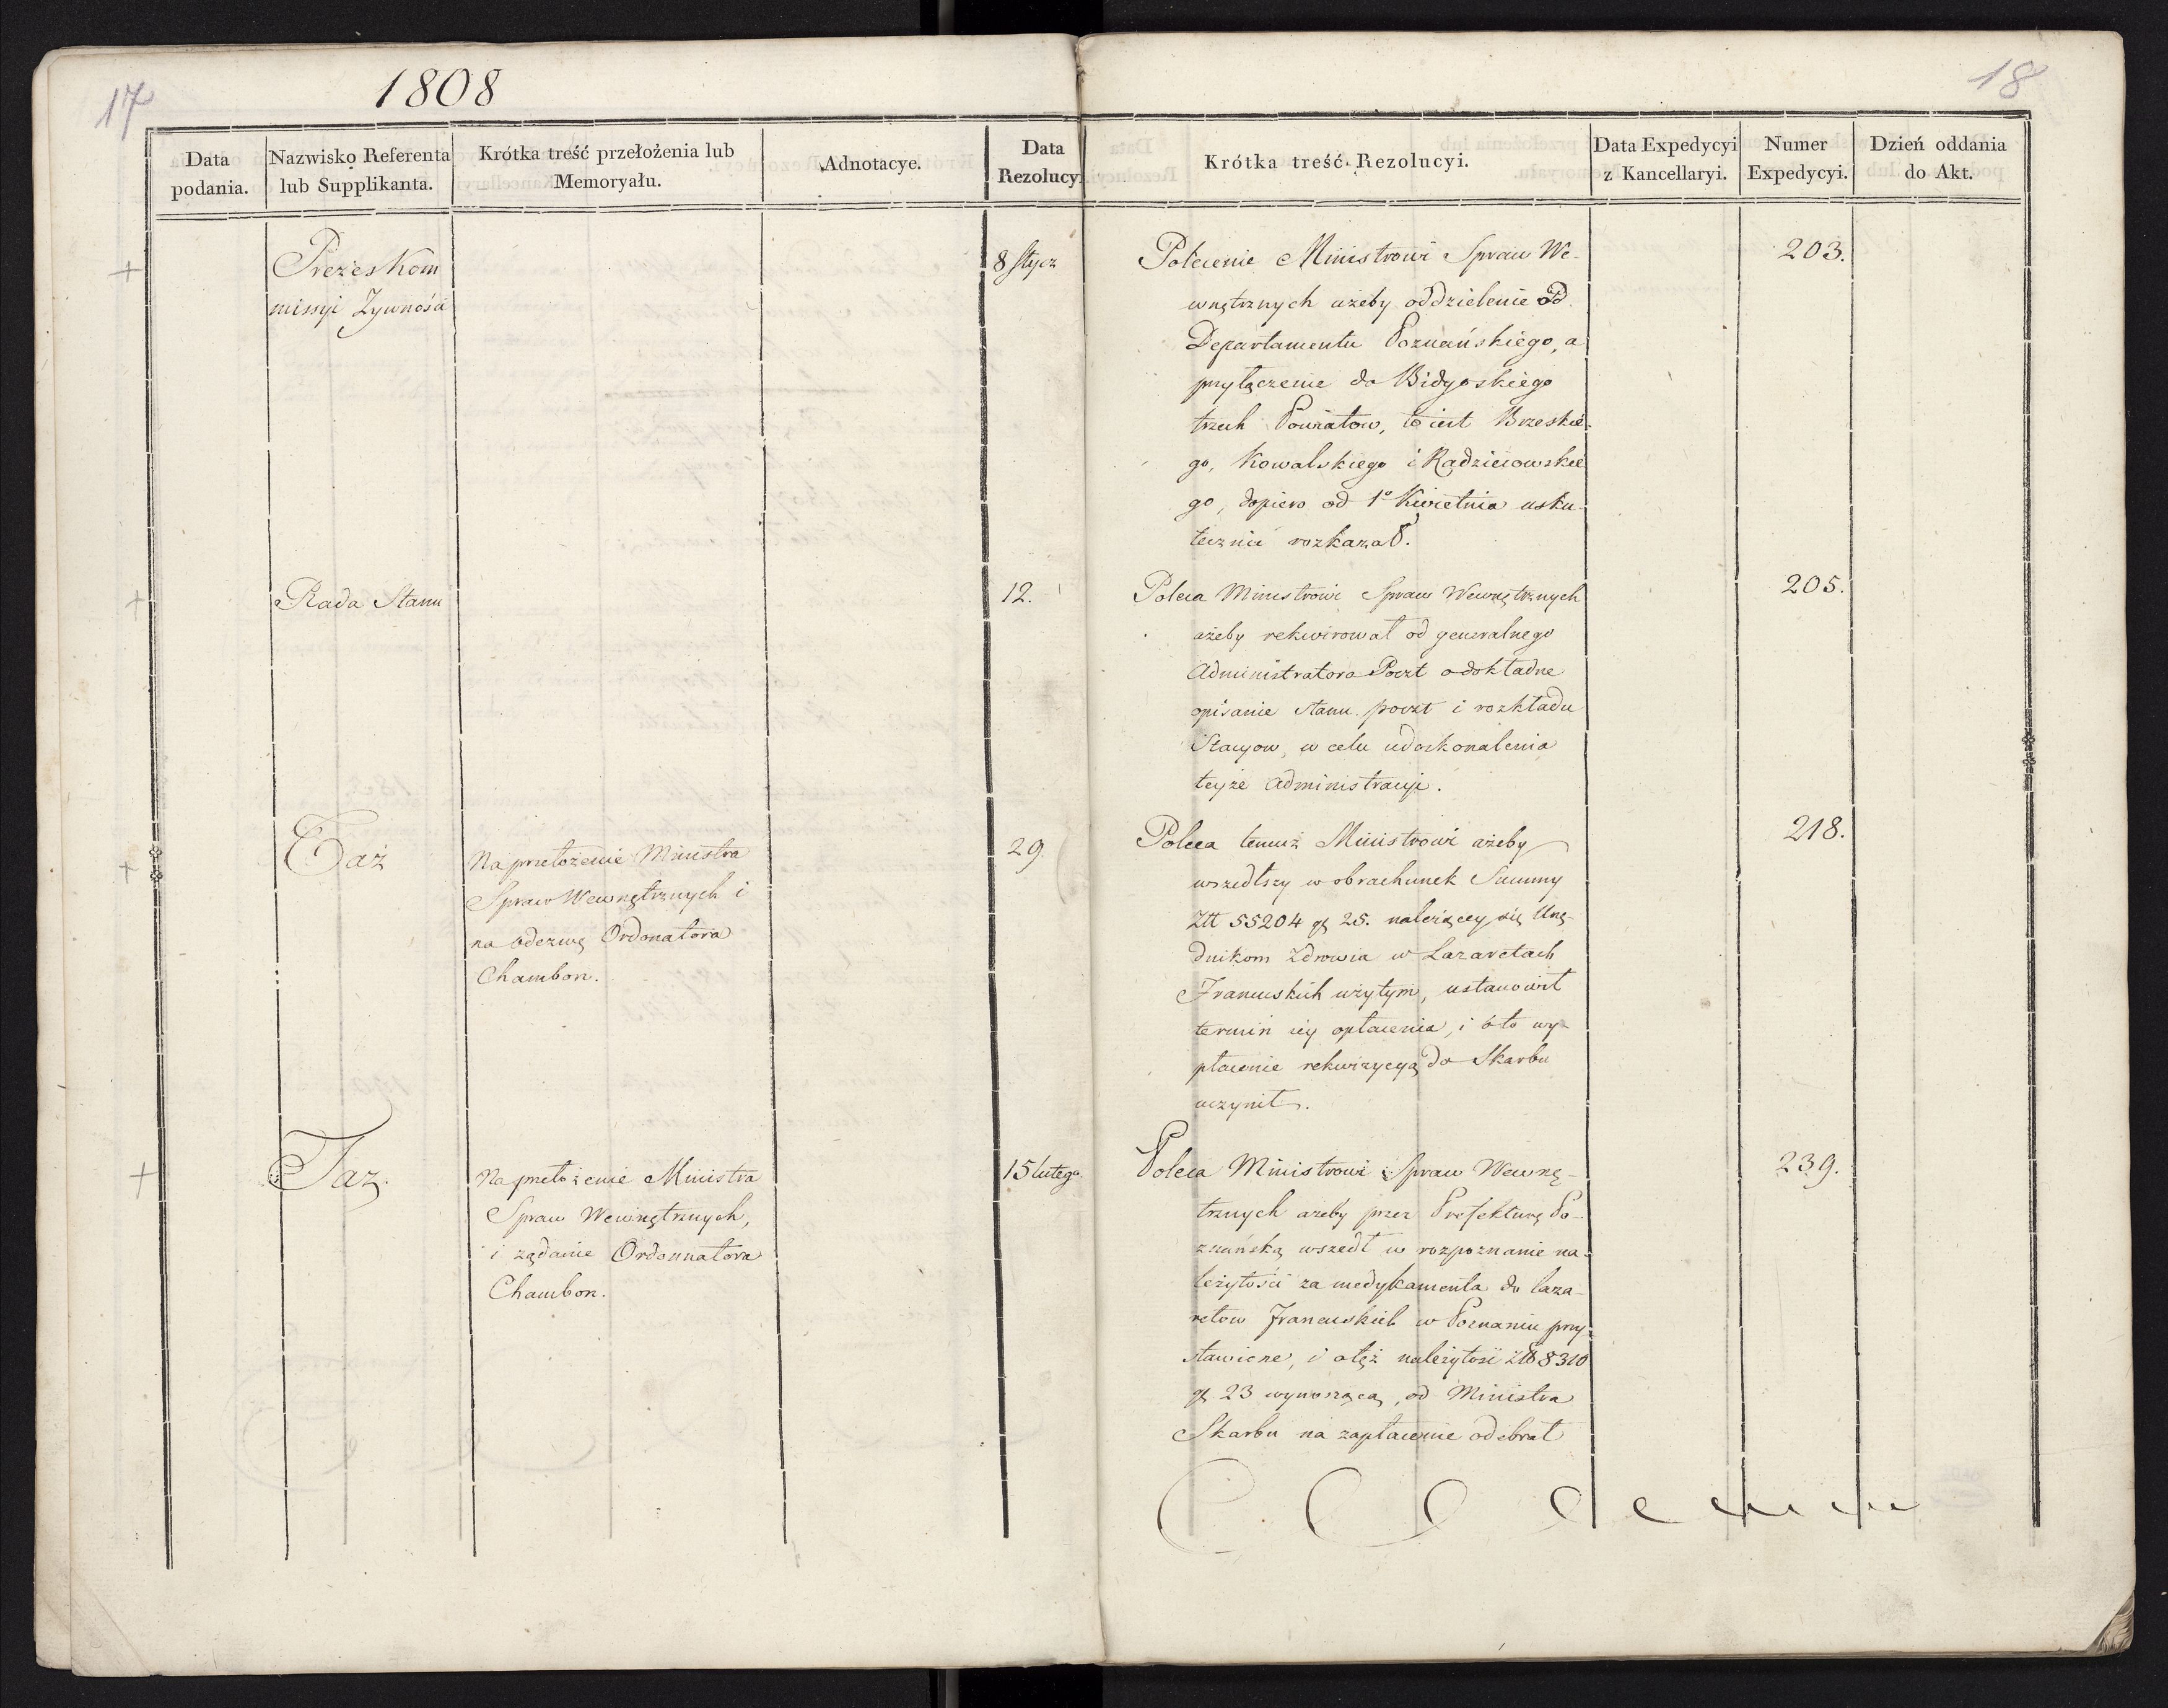 17
1808
18
Data podania.
Nazwisko Referenta lub Supplikanta.
Krótka treść przełożenia lub Memoryału.
Adnotacye.
Data Rezolucyi
Krótka treść Rezolucyi.
Data Expedycyi z Kancellaryi.
Numer Expedycyi.
Dzień oddania do Akt.
Prezes Kom
missyi Żywności
8 Stycz
Polecenie Ministrowi Spraw We-
wnętrznych ażeby oddzielenie od
Departamentu Poznańskiego, a
przyłączenie do Bidgoskiego
trzech Powiatow, to iest Brzeskie-
go, Kowalskiego i Radzieiowskie
go, dopiero od 1º Kwietnia usku-
tecznić rozkazał.
203.
Rada Stanu
12.
Poleca Ministrowi Spraw Wewnętrznych
ażeby rekwirował od generalnego
Administratora Poczt o dokładne
opisanie stanu poczt i rozkładu
Stacyow, w celu udoskonalenia
teyże Administracyi.
205.
Taż
Na przełożenie Ministra
Spraw Wewnętrznych i
na odezwę Ordonatora
Chambon.
29.
Poleca temuż Ministrowi ażeby
wszedłszy w obrachunek Summy
Złł 55204 gr 25. należącey się Urzę-
dnikom Zdrowia w Lazaretach
Francuskich użytym, ustanowił
termin iey opłacenia, i o to wy-
płacenie rekwizycyą do Skarbu
uczynił.
218.
Taż.
Na przełożenie Ministra
Spraw Wewnętrznych,
i żądanie Ordonnatora
Chambon.
15 Lutego.
Poleca Ministrowi Spraw Wewnę-
trznych ażeby przez Prefekturę Po-
znańską wszedł w rozpoznanie na-
leżytości za medykamenta do laza-
retow Francuskich w Poznaniu przy-
stawione, i otęż należytość Złł 8310
gr 23 wynoszącą, od Ministra
Skarbu na zapłacenie odebrał
239.